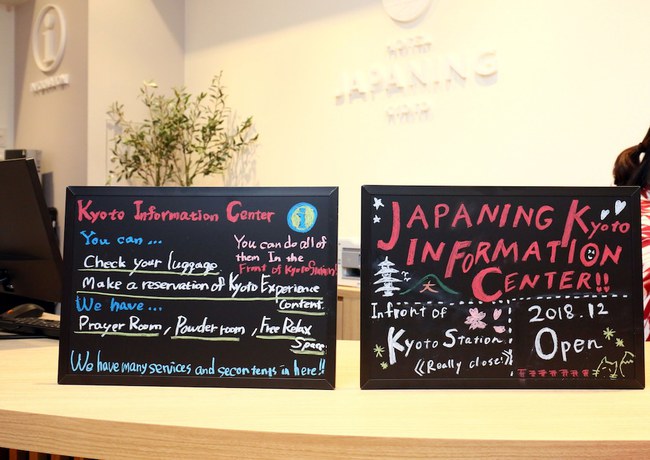 JAPANING
Kyoto Information Center
i
You can...
Check your luggage.
Make a reservation of Kyoto Experience
Content
You can do all of
them In the
Front of Kyoto Station!
We have...
Prayer Room, Powder room, Free Relax
Space
We have many services and secontents in here!!
JAPANING Kyoto
INFORMATION
CENTER!!
大
Infront of
Kyoto Station
《Really close!》
2018.12
Open